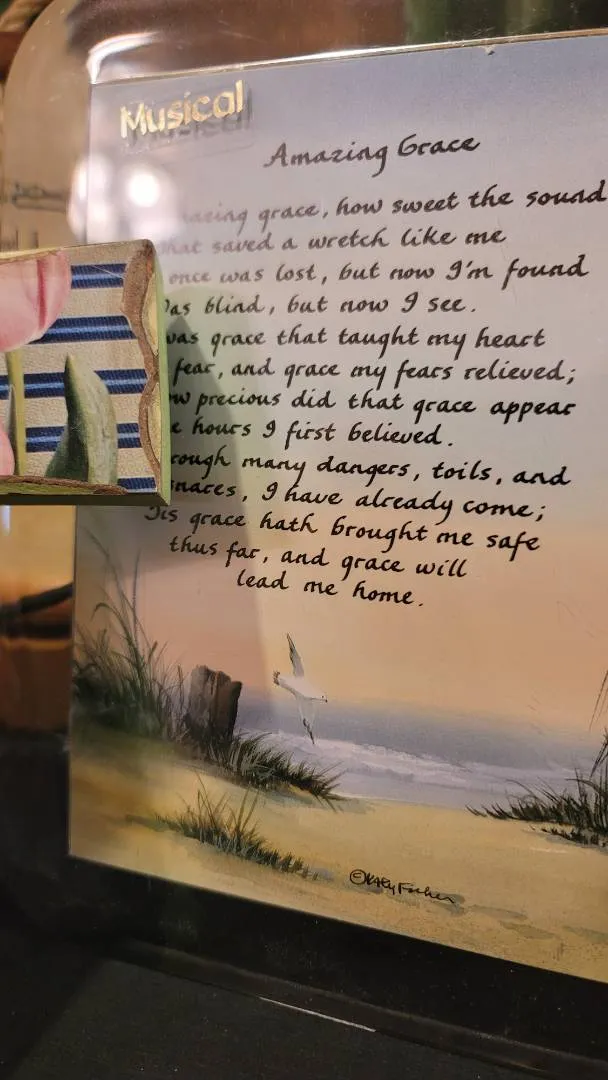 Musical
Amazing Grace
azing grace, how sweet the sound
hat saved a wretch like me
once was lost, but now I'm found
as blind, but now I see.
was grace that taught my heart
fear, and grace my fears relieved;
w precious did that grace appear
e hours I first believed.
rough many dangers, toils, and
snares, I have already come;
Tis grace hath brought me safe
thus far, and grace will
lead me home.